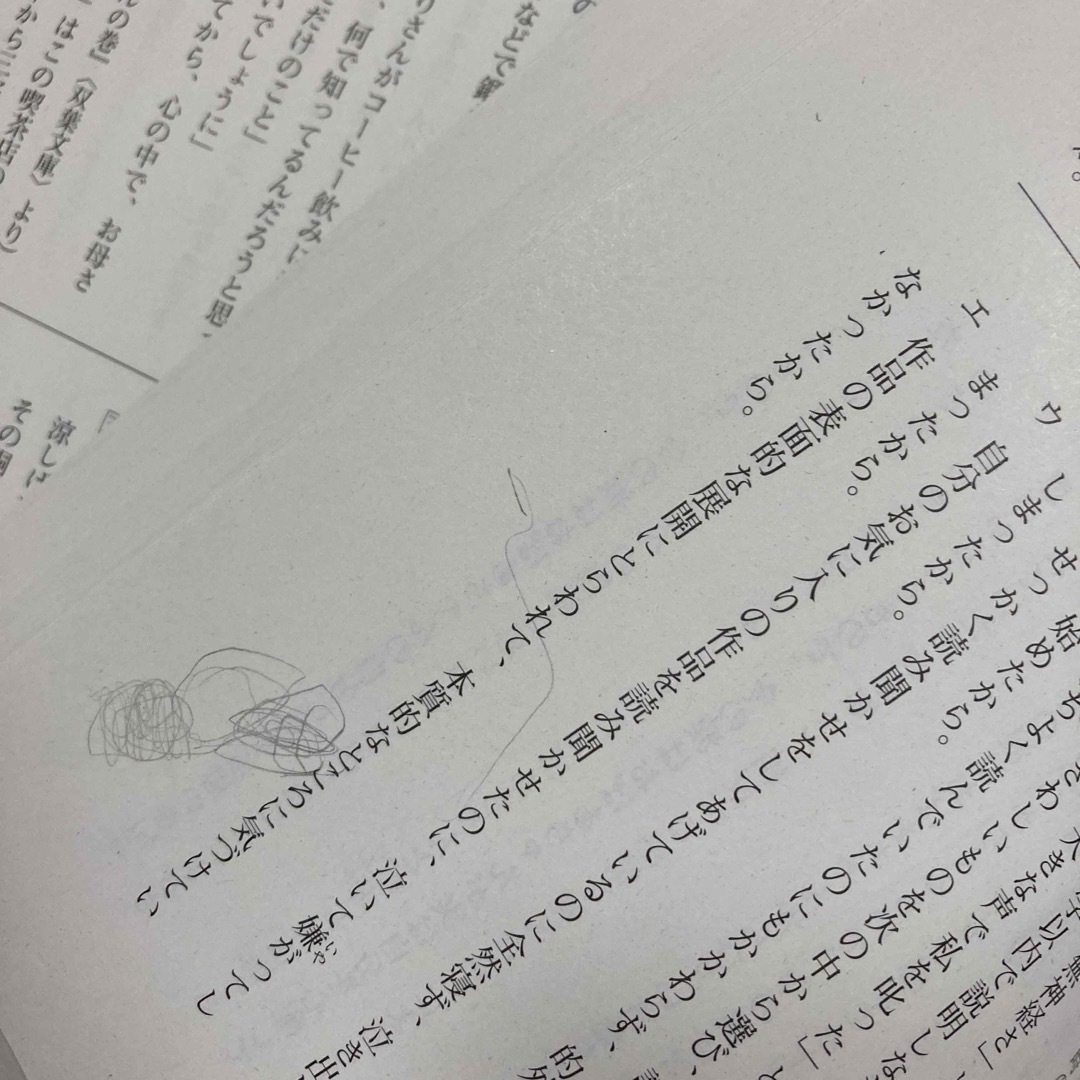 神経さ」
以内で説明しな
大きな声で私を叱った」と
わしいものを次の中から選び、
ちよく読んでいたのにもかかわらず、
始めたから。
せっかく読み聞かせをしてあげているのに全然寝ず、泣き出
しまったから。
ウ 自分のお気に入りの作品を読み聞かせたのに、泣いて嫌がってし
まったから。
エ 作品の表面的な展開にとらわれて、本質的なところに気づけてい
なかったから。
などで
りさんがコーヒー飲みに
何で知ってるんだろうと思
だけのこと」
いでしょうに」
てから、心の中で、お母さ
の巻』〈双葉文庫〉より)
はこの喫茶店の
から
涼し
その